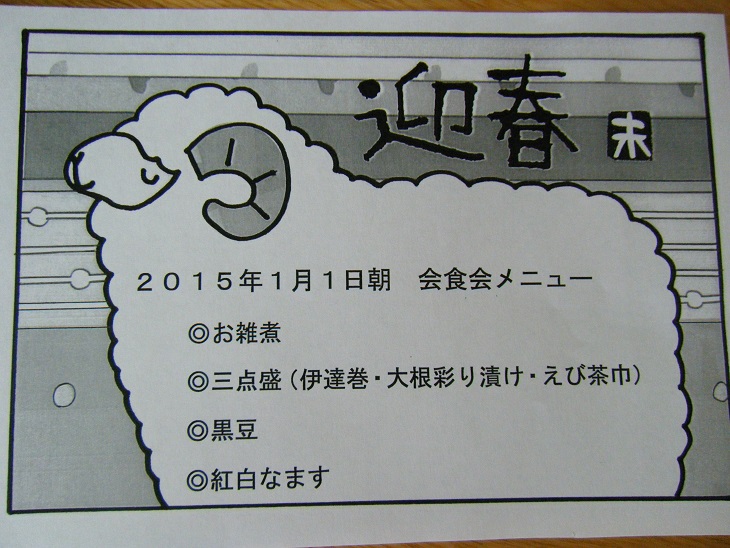 迎春 未
2015年1月1日朝　会食会メニュー
◎お雑煮
◎三点盛（伊達巻・大根彩り漬け・えび茶巾）
◎黒豆
◎紅白なます